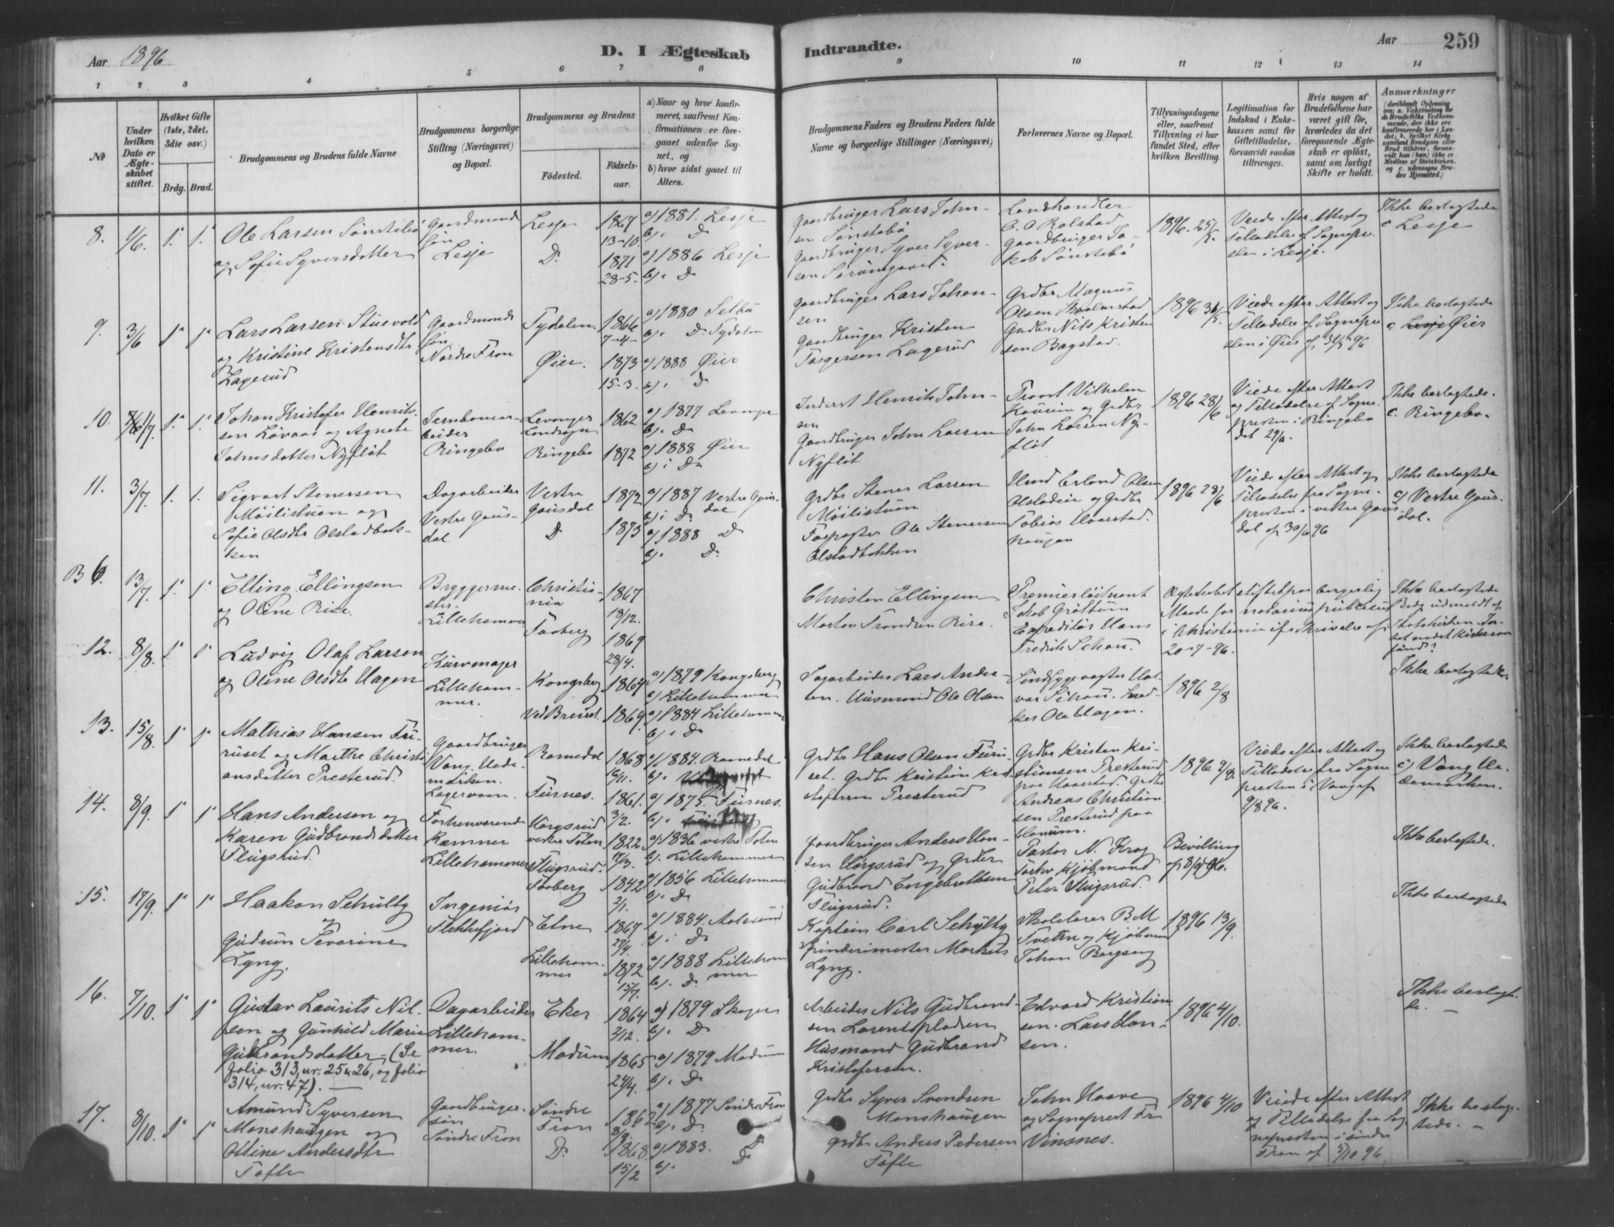 Aar 1896
D. I Ægteskab
Indtraadte.
Aar
259
1 2 3 4 5 6 7 8 9 10 11 12 13 14
No
Under hvilken Dato er Ægteskabet stiftet.
Hvilket Gifte (1ste, 2det, 3die osv.)
Brdg. Brud.
Brudgommens og Brudens fulde Navne
Brudgommens borgerlige Stilling (Næringsvei) og Bopæl.
Brudgommens og Brudens
Fødested.
Fødselsaar.
a) Naar og hvor konfirmeret, saafremt Konfirmationen er foregaaet udenfor Sognet, og
b) hvor sidst gaaet til Alters.
Brudgommens Faders og Brudens Faders fulde Navne og borgerlige Stillinger (Næringsvei)
Forlovernes Navne og Bopæl.
Tillysningsdagene eller, saafremt Tillysning ei har fundet Sted, efter hvilken Bevilling.
Legitimation for Indskud i Enkekassen samt for Giftetilladelse, forsaavidt saadan tiltrænges.
Hvis nogen af Brudefolkene har været gift før, hvorledes da det foregaaende Ægteskab er opløst, samt om lovligt Skifte er holdt.
Anmærkninger
8. 1/6. 1. 1.
Ole Larsen Sønstebø
og Sofie Syversdatter
Gaardmands
søn
Lesje
Lesje
D.
1867
13-10
1871
28-5.
a) 1881. Lesje
b). D
a) 1886 Lesje
b). D
Gaardbruger Lars John-
sen Sønstebø
Gaardbruger Syver Syver-
sen
Landhandler
Gaardbruger Ja-
kob Sønstebø
1896. 25/5.
Viede efter Attest og
Tilladelse af Sognepre-
sten i Lesje.
Ikke beslægtede
c Lesje
9. 3/6 1 1
Lars Larsen Stuevold
og Kristine Kristensdtr
Lagerud
Gaardmands
søn
Nordre Fron
Tydalen
Øier.
1866
7-4-
1873
15-3.
a) 1880 Selbu
b). D Tydalen
a) 1888 Øier
b). D
Gaardbruger Lars Johan-
sen
Gaardbruger Kristen
Torgersen Lagerud
Grdbr Magnus
Olsen
Grdbr Nils Kristen
sen Bagstad.
1896 31/5.
Viede efter Attest og
Tilladelse af Sognepre
sten i Øier af 31/5 96
Ikke beslægtede
c Øier
10. 1. 1.
Johan Kristofer Henrik-
sen Løvaas og Agnete
Johnsdatter Nyfløt
Jernbanear-
beider
Ringebo
Levanger
Landsogn
Ringebo
1862
1872
a) 1877 Levanger
b). D.
a) 1888 Øier
b) i D
Inderst Henrik John-
sen
Gaardbruger John Larsen
Nyfløt
Vilhelm
og Grdbr
John Larsen Ny-
fløt
1896 28/6
Viede efter Attest
og Tilladelse af Sogne-
presten i Ringebo
dat 29/6.
Ikke beslægtede.
c. Ringebo.
11. 3/7. 1. 1.
Sigvart Stenersen
Møilistuen og
Sofie Olsdtr Olstadbak-
ken
Dagarbeider
Vestre Gaus-
dal
Vestre
Gausdal
D
1872
1873
a) 1887 Vestre Gaus-
b) i D. dal
a) 1888 D
b). D.
Grdbr Stener Larsen
Møilistuen
Ole Stenersen
Olstadbakken
Erland Olsen
og Grdbr
Tobias
1896 28/6
Viede efter Attest og
Tilladelse fra Sogne-
presten i vestre Gaus
dal af 30/6 96
Ikke beslægtede
c) Vestre Gaus-
dal.
B 6. 13/7. 1. 1
Elling Ellingsen
og Oline Rise.
Bryggerme-
ster
Lillehammer
Christia-
nia
Faaberg
1867
13/12.
1869
28/4.
Christen Ellingsen
Morten Trondsen Rise.
Premierløitnant
Jakob Grøttum
Expeditør Hans
Fredrik Schou.
Ægteskabet stiftet paa borgerlig
Maade for notarius publicus
i Christiania ifl skrivelse af
20-7-96.
Ikke beslægtede
Brdg udmeldt af
Statskirken
12. 8/8. 1 1
Ludvig Olaf Larsen
og Oline Olsdtr Hagen
Kurvemager
Lilleham-
mer.
Kongsberg
1864
1869.
a) 1879 Kongsberg
b) Lillehammer
a) 1884 Lillehammer
b). D.
Dagarbeider Lars Ander-
sen. Husmand Ole Olsen
Ole Hagen.
1896 2/8
Ikke beslægtede
13. 15/8. 1 1
Mathias Hansen Fu-
ruset og Marthe Christi
ansdatter Presterud.
Gaardbruger
Vang Hede-
marken.
Romedal
Furnes.
1868
1861.
a) 1884. Romedal
a) 1875. Furnes
Grdbr Hans Olsen Furu-
set. Grdbr Kristian Kri
stofersen Presterud
Grdbr Kristen Kri-
stiansen Presterud
Andreas Christian
sen Presterud paa
1896 2/8.
Viede efter Attest og
Tilladelse fra Sogne
presten i Vang af
9/8 96.
Ikke beslægtede
c) Vang He-
demarken.
14. 8/9. 1 1
Hans Andersen og
Karen Gudbrandsdatter
Flugsrud.
Forhenværende
Kæmner
Lillehammer
vestre Toten
Flugsrud.
Faaberg
1822
1842
a) 1836 vestre Toten
b). Lillehammer
a) 1856 Lillehammer
b). D
Gaardbruger Anders Han-
sen og Grdbr
Gudbrand Engebretsen
Flugsrud.
Pastor N. Krog
Kjøbmand
Peter Flugsrud.
Bevilling
Ikke beslægtede.
15. 17/9. 1 1
Haakon Schultz
og
Gudrun Severine
Lyng.
Ingeniør
Flekkefjord
Etne
Lilleham-
mer
1867
1872
15/7
a) 1884 Aalesund
b) i D
a) 1888 Lilleham
b). D. mer
Kaptein Carl Schultz
Spinderimester Markus
Lyng.
Skolelærer B.M
Tveten og Kjøbmand
Johan Borgeng
1896 13/9.
Ikke beslægtede
16. 7/10. 1 1
Gustav Laurits Nil-
sen og Gunhild Marie
Gulbrandsdatter - (Se
folio 313, nr. 25 & 26, og folio
314, nr. 47). -
Dagarbeider
Lilleham-
mer.
Eker
Modum
1864
2/12.
1865
24/4.
a) 1879 Skoger
b). D
a) 1879 Modum
b). D
Arbeider Nils Gudbrand-
sen Lorentspladsen
Husmand Gudbrand
Kristofersen.
Edvard Kristian
sen. Lars Han-
sen.
1896 4/10.
Ikke beslægt-
de. -
17. 8/10. 1 1
Amund Syversen
Monshaugen og
Olline Andersdtr
Tofte
Gaardbruger-
søn
Søndre Fron
Søndre
Fron
D.
1862
1868
15/2
a) 1877 Søndre Fron
b). D.
a) 1883. D
b). D
Grdbr Syver Svendsen
Monshaugen
Grdbr Anders Pedersen
Tofte
John Haave
og Sogneprest Fr
Vinsnes.
1896 4/10
Viede efter Attest
og Tilladelse fra Sog
nepresten i søndre
Fron af 5/10 96
Ikke beslæg-
tede. -